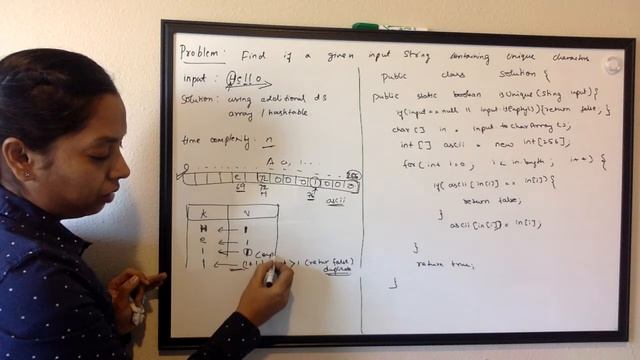 Problem: Find if a given input String containing Unique characters
input: Hello
Solution: using additional ds
array / hashtable
time complexity: n
A a, 1...
256
e 72 0 0 0 0 0
69 72 76 ascii
H
K V
H ← 1
e ← 1
l ← 1
l ← > 1 (return false)
duplicate
public class Solution {
public static boolean isUnique(String input){
if(input == null || input.isEmpty()){return false;}
char[] in = input.toCharArray();
int[] ascii = new int[256];
for(int i=0; i<in.length; i++) {
if(ascii[in[i]] == in[i]){
return false;
}
ascii[in[i]] = in[i];
}
return true;
}